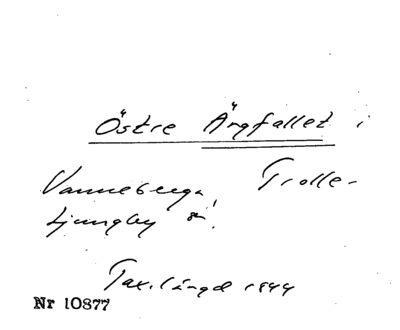 Östre Ärgfallet i
Vanneberga, Trolle-
Ljungby sn.
Tax.längd 1944
Nr 10877